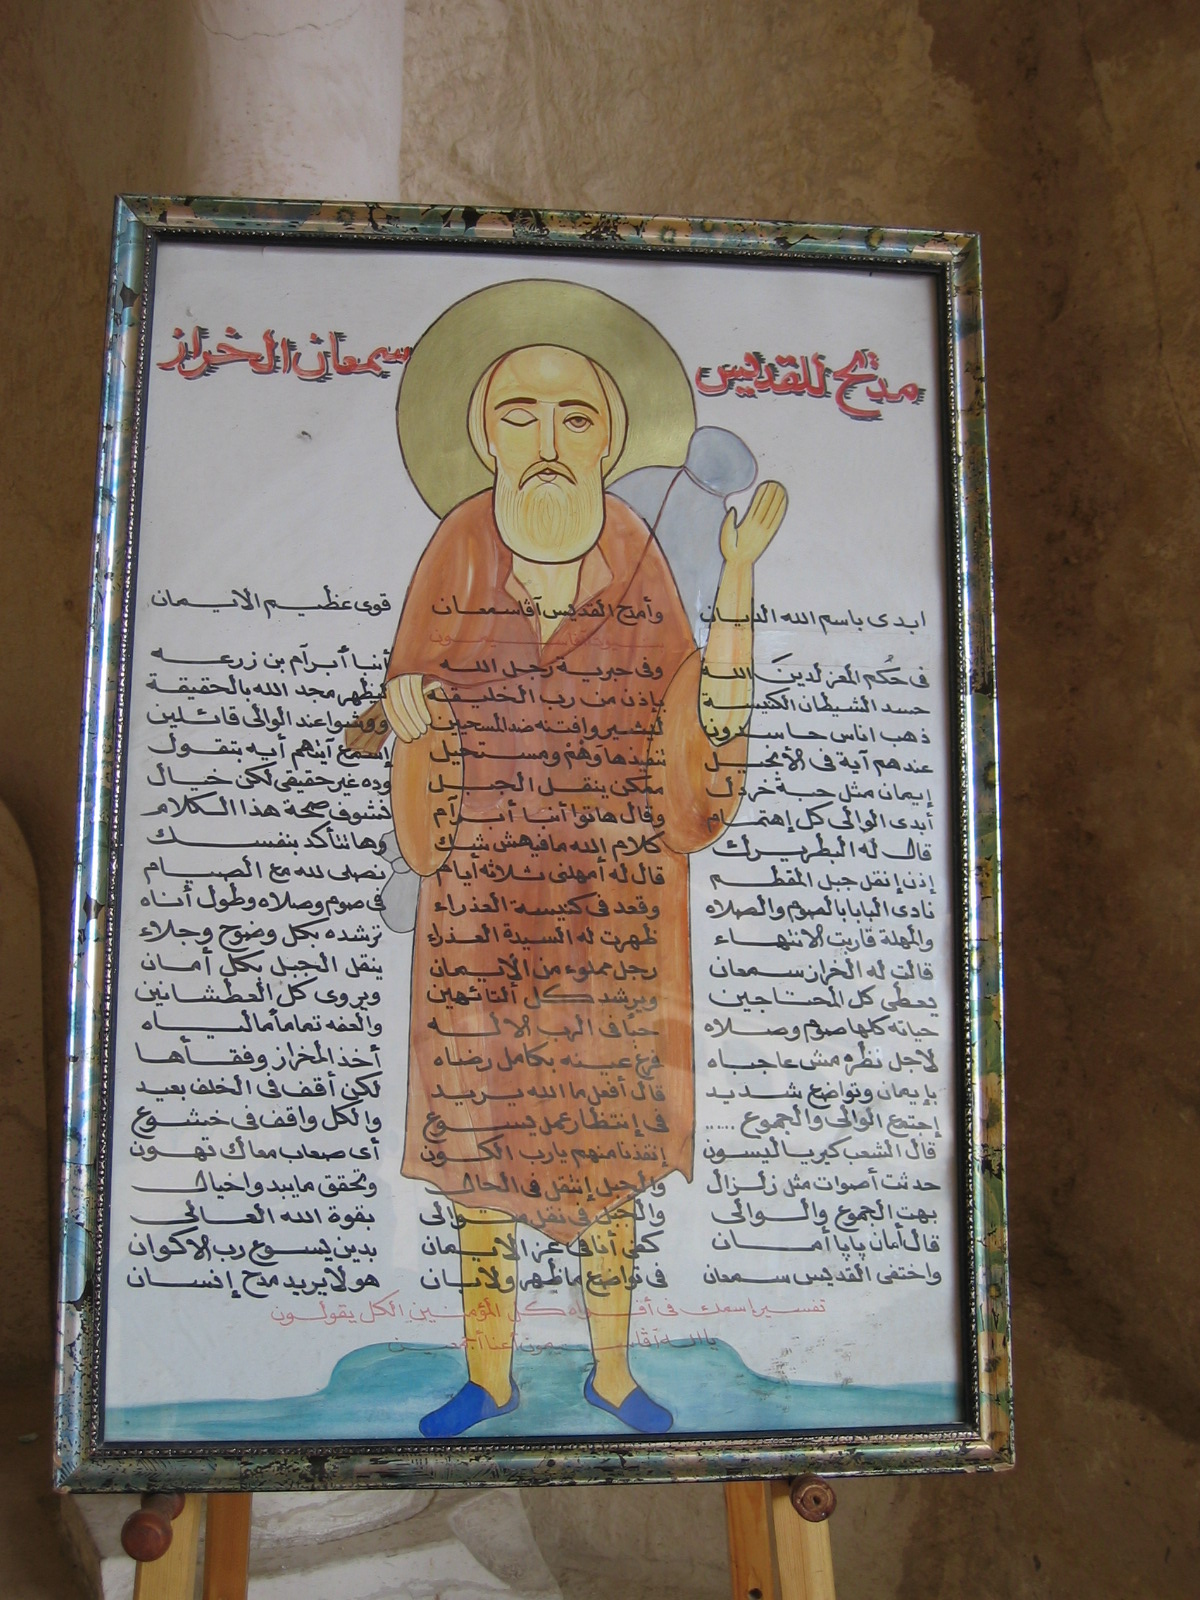 مديح للقديس سمعان الخراز
ابدى باسم الله الديان وأمدح القديس آڤاسمعان قوى عظيم الايمان
فى حُكم المعز لدينَ اللهَ وفى حبرية رجل الله أنبا أبرآم بن زرعه
حسد الشيطان الكنيسة بإذن من رب الخليقه ليظهر مجد الله بالحقيقة
ذهب اناس حاسدون ليشير وافتنه ضد المسحيين ووشوا عند الوالى قائلين
عندهم آية فى الأنجيل تنفيدها وَهْمْ ومستحيل إسمع آيتهم أيه بتقول
إيمان مثل حبة خردل ممكن ينقل الجبل وده غير حقيقى لكن خيال
أبدى الوالى كل إهتمام وقال هاتوا أنبا أبرآم نشوف صحة هذا الكلام
قال له البطريرك كلام الله مافيهش شك وها تتأكد بنفسك
إذن إنقل جبل المقطم قال له أمهلنى ثلاثة أيام نصلى لله مع الصيام
نادى البابا بالصوم والصلاه وقعد فى كنيسة العذراء فى صوم وصلاه وطول أناه
والمهلة قاربت الانتهاء ظهرت له السيدة العذراء ترشده بكل وضوح وجلاء
قالت له الخراز سمعان رجل مملوء من الإيمان ينقل الجبل بكل أمان
يعطى كل المحتاجين ويرشد كل التائهين ويروى كل العطشانين
حياته كلها صوم وصلاه حباً فى الرب الاله والعفه تماماً مالياه
لاجل نظره مش عاجباه فرغ عينه بكامل رضاه أخذ المخراز وفقأها
بإيمان وتواضع شديد قال أفعل ما الله يريد لكن أقف فى الخلف بعيد
إجتمع الوالى والجموع ..... فى إنتظار عمل يسوع والكل واقف فى خشوع
قال الشعب كيرياليسون إنقذنا منهم يارب الكون أى صعاب معاك تهون
حدثت أصوات مثل زلزال والجبل إنتقل فى الحال وتحقق مايبد واخيال
بهت الجموع والوالى والجبل فى نقل متوالى بقوة الله العالى
قال أمان يابا أمان كفى أنا فى عز الايمان بدين يسوع رب الاكوان
واختفى القديس سمعان فى تواضع ماظهر ولابان هو لايريد مدح إنسان
تفسير إسمك فى أفواه كل المؤمنين الكل يقولون
يا إله آڤا سيمون أعنا أجمعين